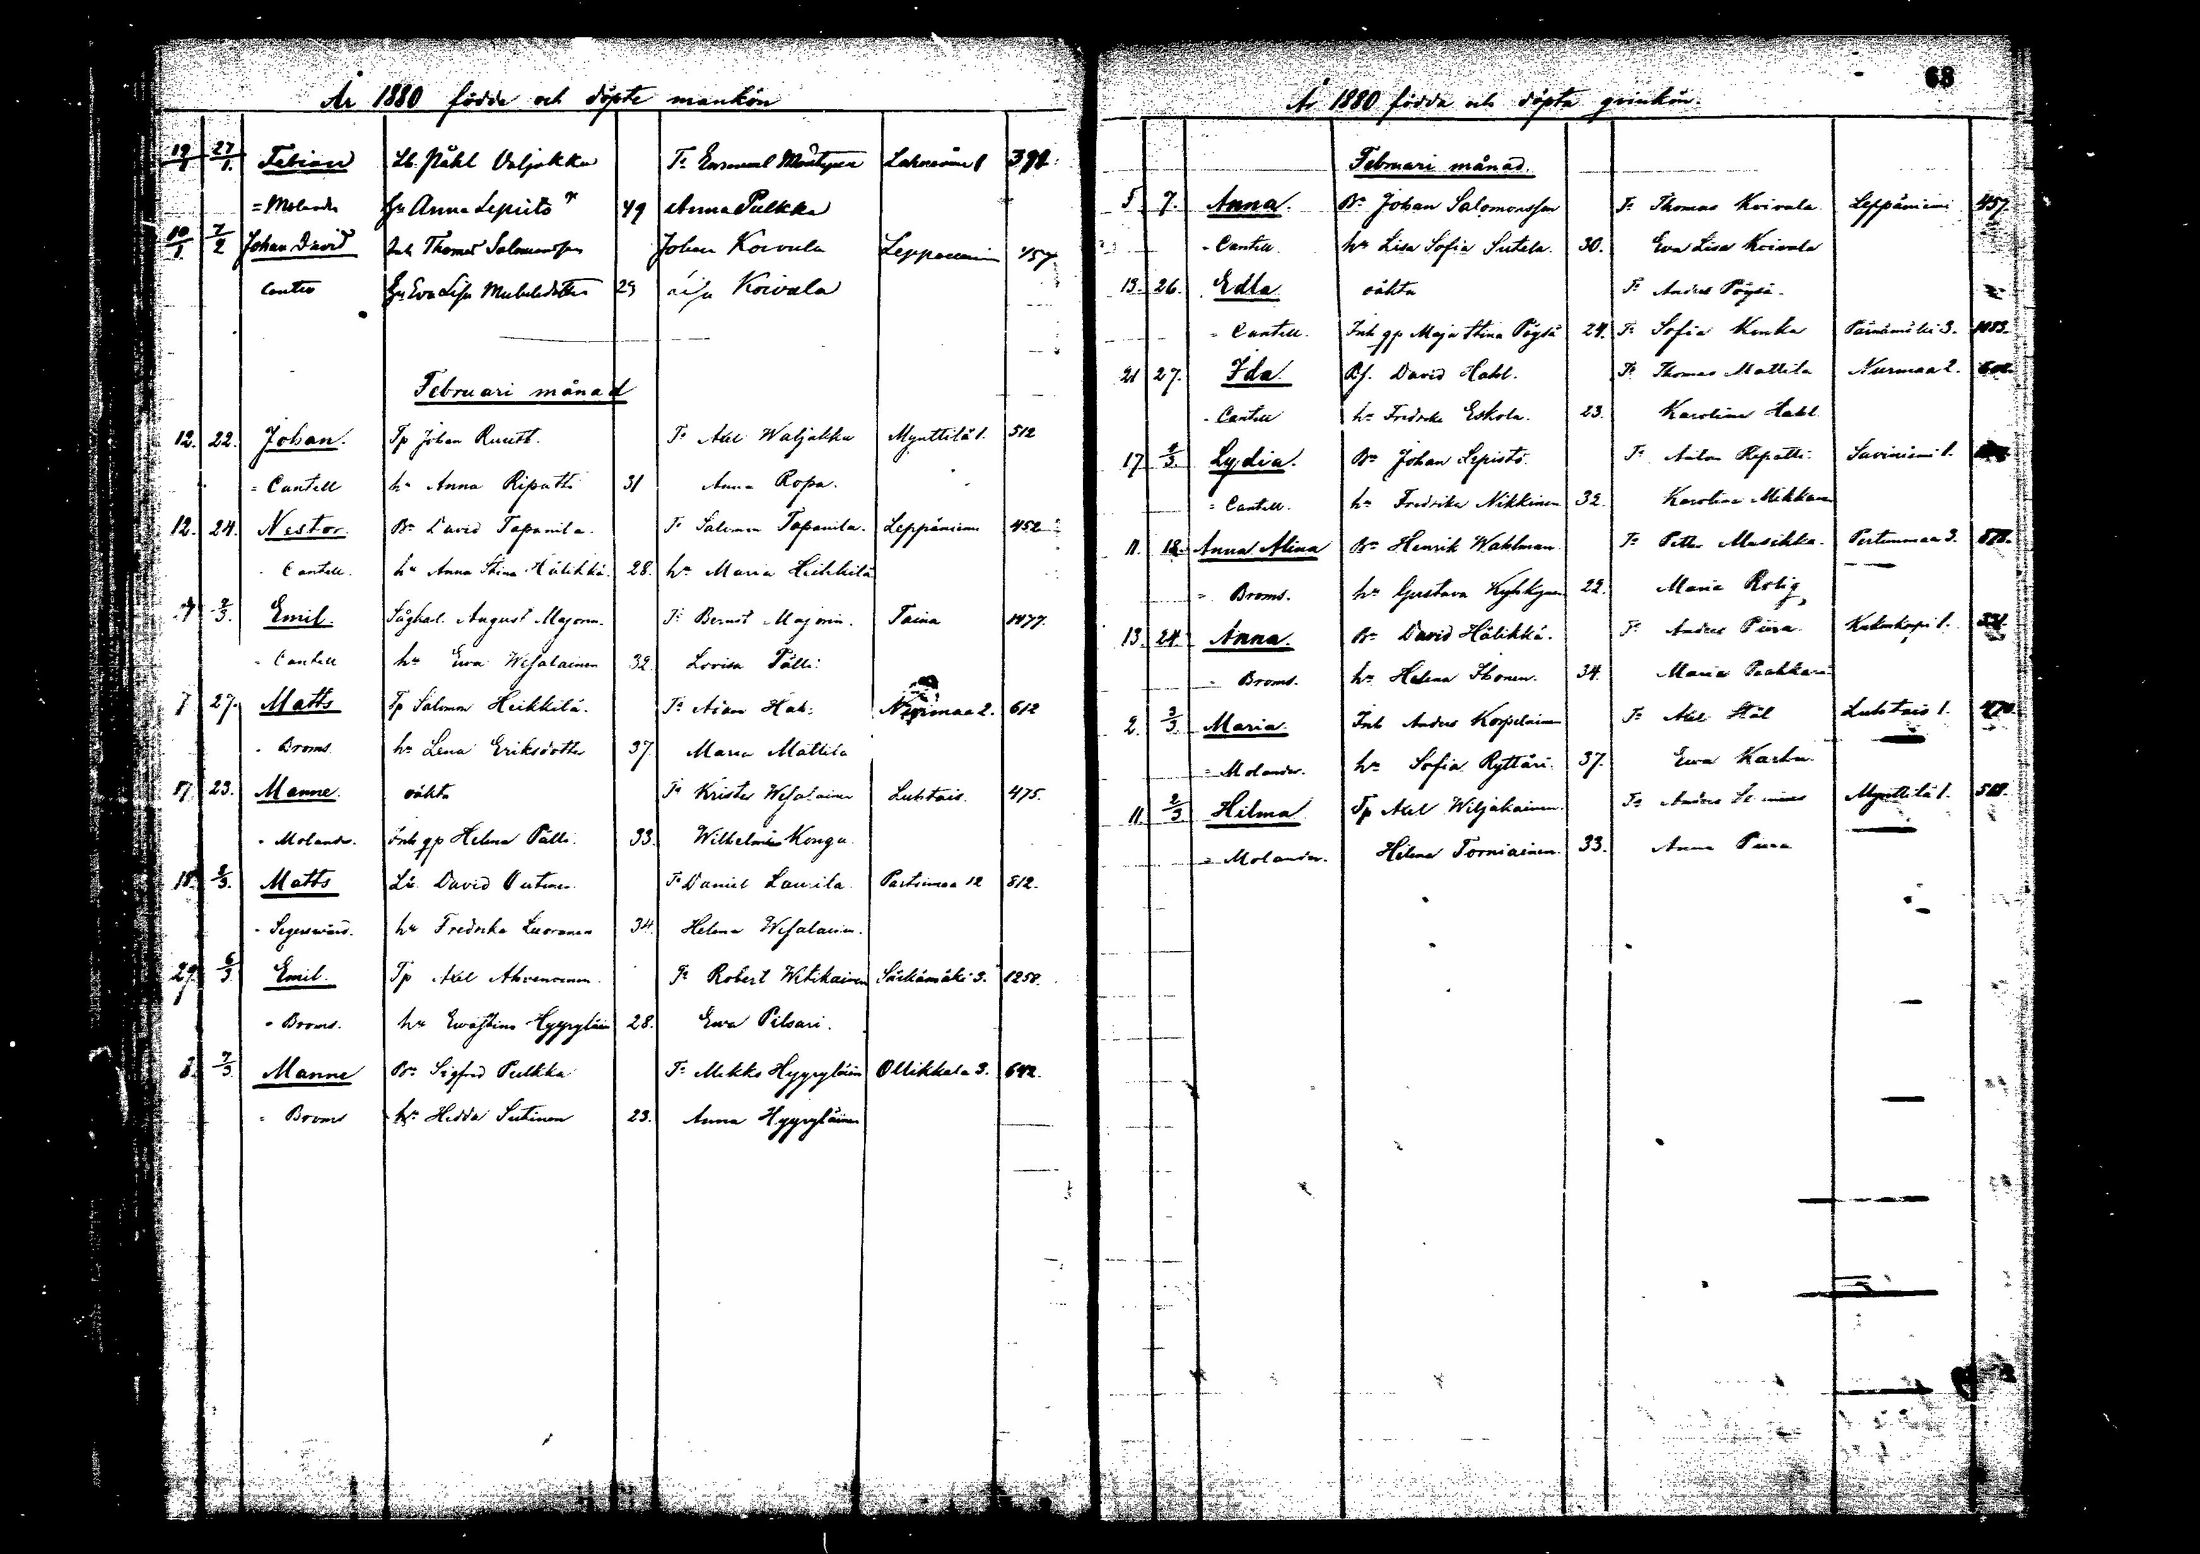 År 1880 födde och döpte mankön
19/1 27/1. Fabian Lb. Påhl Valjakka Fr Emanuel Mäntynen 1 392.
= Molander hu Anna 49 Anna Pulkka
10/1 7/2 Johan David Inh Thomas Salomonsson Johan Koivula Leppäniemi 457.
Hu Eva Lisa 29 Koivula
Februari månad
12. 22. Johan. Tp Johan Fr Axel Waljakka Mynttilä 1. 512
= Cantell hu Anna Ripatti 31 Anna Ropa.
12. 24. Nestor. Bn David Tapanila. Fr Salomon Tapanila. Leppäniemi 452
- Cantell. hu Anna Stina Hälikkä. 28. hu Maria Heikkilä
2/3. Emil. August Majorin. Fr Bernst Majorin. Taina 1477.
- Cantell hu Ewa Wesalainen 32. Lovisa Pälli.
7 27. Matts Tp Salomon Heikkilä. Fr Adam Hak: Nurmaa 2. 612
- Broms. hu Lena Eriksdotter 37. Maria Mattila
17 23. Manne. oäkta Fr Krister Wesalainen Luhtais. 475.
- Molander. Inh gp Helena Pälli. 33. Wilhelmina Konga.
18. 2/3. Matts David Fr Daniel Laurila. Partsimaa 12 812.
- Segerswärd. hu Fredrika Luoranen 34. Helena Wesalainen.
29. 6/3. Emil. Tp Axel Ahvenainen. Fr Robert Särkämäki 3. 1258.
- Broms. hu Ewastina Hyyryläin 28. Ewa Pilsari.
3. 7/3. Manne Bn Sigfrid Pulkka Fr Mikko Hyyryläin Ollikkala 3. 642.
- Broms hu Hedda Sutinen 23. Anna Hyyryläinen
63
År 1880 födda och döpta qvinkön.
Februari månad.
5 7. Anna. Bn Johan Salomonsson Fr Thomas Koivala Leppäniemi 457.
- Cantell. hu Lisa Sofia Sutela. 30. Eva Lisa Koivala
13. 26. Edla oäkta Fr Anders Pöysä.
- Cantell. Inh gp Maja Stina Pöysä 24. Fr Sofia Konka 3. 1083.
21 27. Ida Bf. David Hahl. Fr Thomas Mattila Nurmaa 2.
- Cantell hu Fredrika Eskola. 23. Karolina Hahl.
17 2/3. Lydia. Bn Johan Lepistö. Fr Anton Ripatti. Saviniemi 1.
- Cantell. hu Fredrika Nikkinen 32. Karolina Mikkanen
11. 18. Anna Alina Bn Henrik Wahlman. Fr Petter Musikka. Pertunmaa 3.
- Broms. hu Gustava 22. Maria Rolig
13. 24. Anna. Bn David Hälikkä. Fr Anders Piira. 1.
- Broms. hu Helena Ihonen. 34. Maria Paakkari
2. 3/3. Maria Inh Anders Korpelainen Fr Axel Stål Luhtais 1. 470
- Molander. hu Sofia Ryttäri. 37. Ewa Karhu.
11. 2/3 Hilma Tp Axel Wiljakainen. Fr Anders Mynttilä 1.
- Molander. Helena Torniainen. 33. Anna Piira